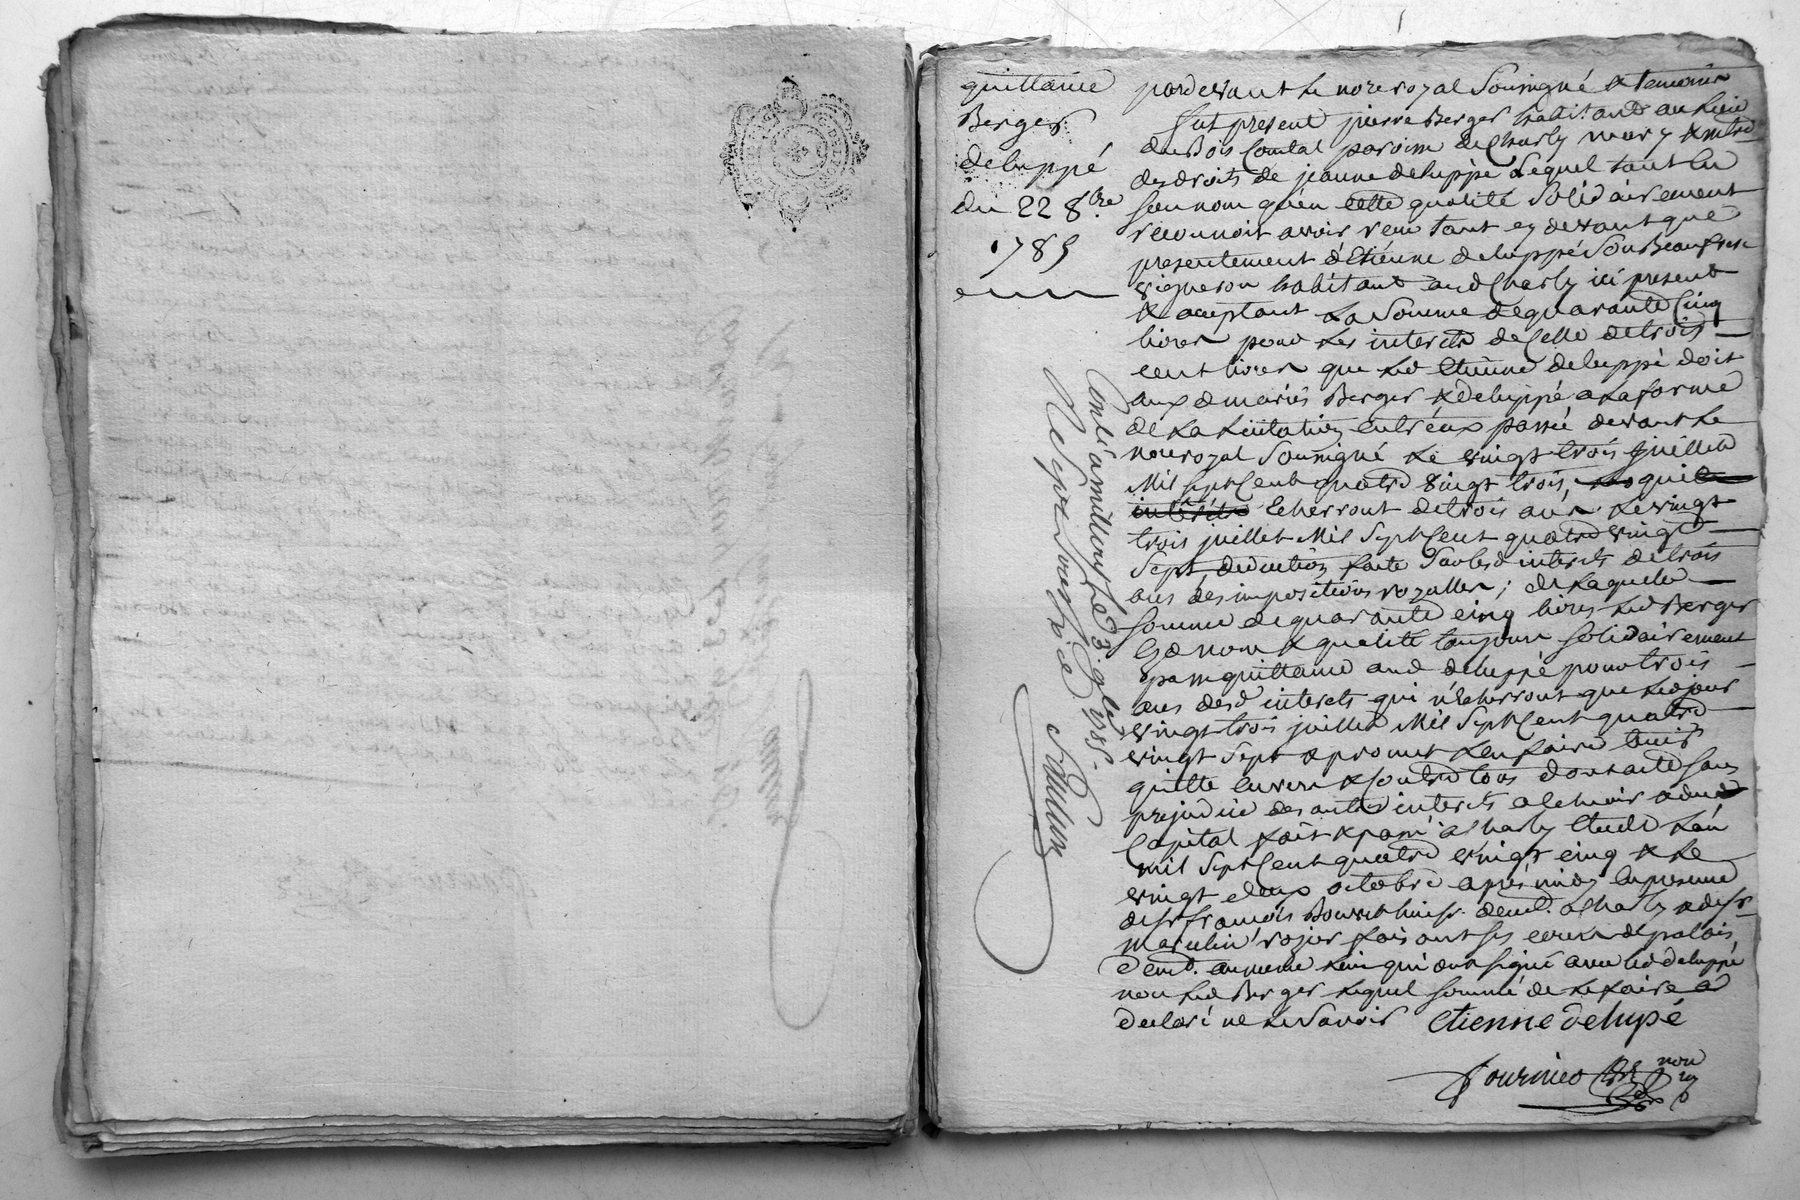 quittance
Berger
deluppé
du 22 8.bre
1785
pardevant le no.re royal Soussigné & temoins
fut present pierre Berger habitant au lieu
du Bois Comtal paroisse de Charly mary & m.tre
des droits de jeanne deluppé Lequel tant en
son nom qu'en cette qualité Solidairement
reconnoit avoir reçu tant cy devant que
presentement d'Etienne deluppé Son Beaufrere
vigneron habitant aud Charly ici present
& acceptant La Somme de quarante Cinq
livres pour Les interets de Celle de trois
cent livres que Led Etienne deluppé doit
aux d mariés Berger & deluppé a la forme
de La Licitation entr'eux passée devant Le
no.re royal Soussigné Le vingt trois juillet
Mil Sept Cent quatre vingt trois,
Echerront de trois ans Le vingt
trois juillet Mil Sept Cent quatre vingt
Sept, deduction faite Sur lesd interets de trois
ans des impositions royalles; de Laquelle
Somme de quarante cinq livres Led Berger
Esd nom & qualité toujours Solidairement
passe quittance aud deluppé pour trois
ans desd interets qui n'echerront que Led jour
vingt trois juillet Mil Sept Cent quatre
vingt Sept & promet L'en faire tenir
quitte envers & Contre tous dont acte Sans
prejudice des autres interets a echeoir & du
Capital fait & passé a Charly Etude L'an
mil Sept Cent quatre vingt cinq & Le
vingt deux octobre après midy en presence
de Sr françois Bouvet huiss.r dem.t a Charly & de Sr
marcelin rojat faisant Ses cours de palais
dem.t au meme Lieu qui ont Signé avec led deluppé
non Led Berger Lequel Sommé de Le faire a
declaré ne Le Savoir Etienne delupé
Fournier no.re
Conlé a millery Le 3. 9bre 1785.
Reçu quinze sols